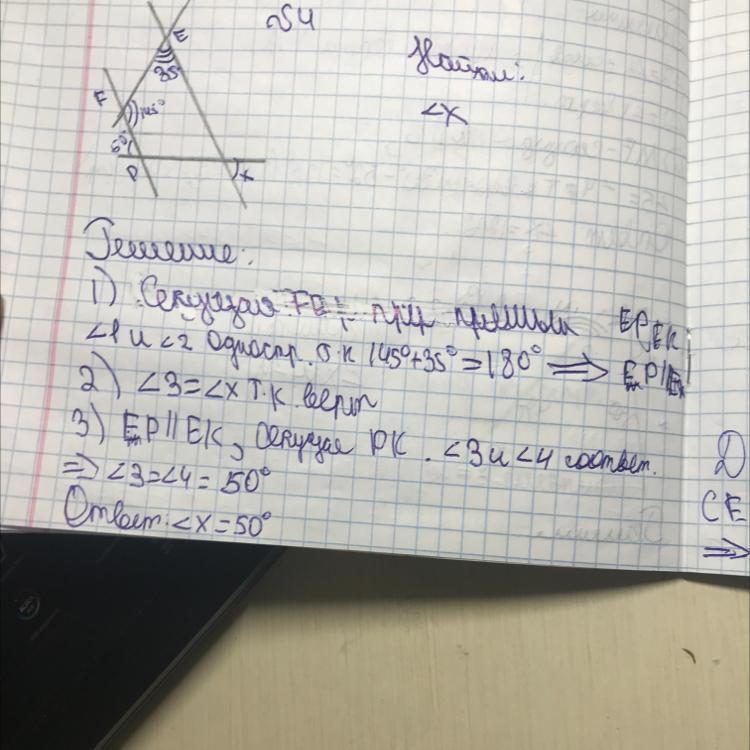 №54
Найти:
∠X
E
35
F
145°
50
P
x
Решение:
1) Секущая FE при прямых EP EK
∠1 и ∠2 одностор. т.к 145°+35°=180° ⟹ EP||EK
2) ∠3=∠X т.к. верт
3) EP||EK, секущая PK. ∠3 и ∠4 соответ.
⟹ ∠3=∠4=50°
Ответ: ∠X=50°
D
CE
⟹